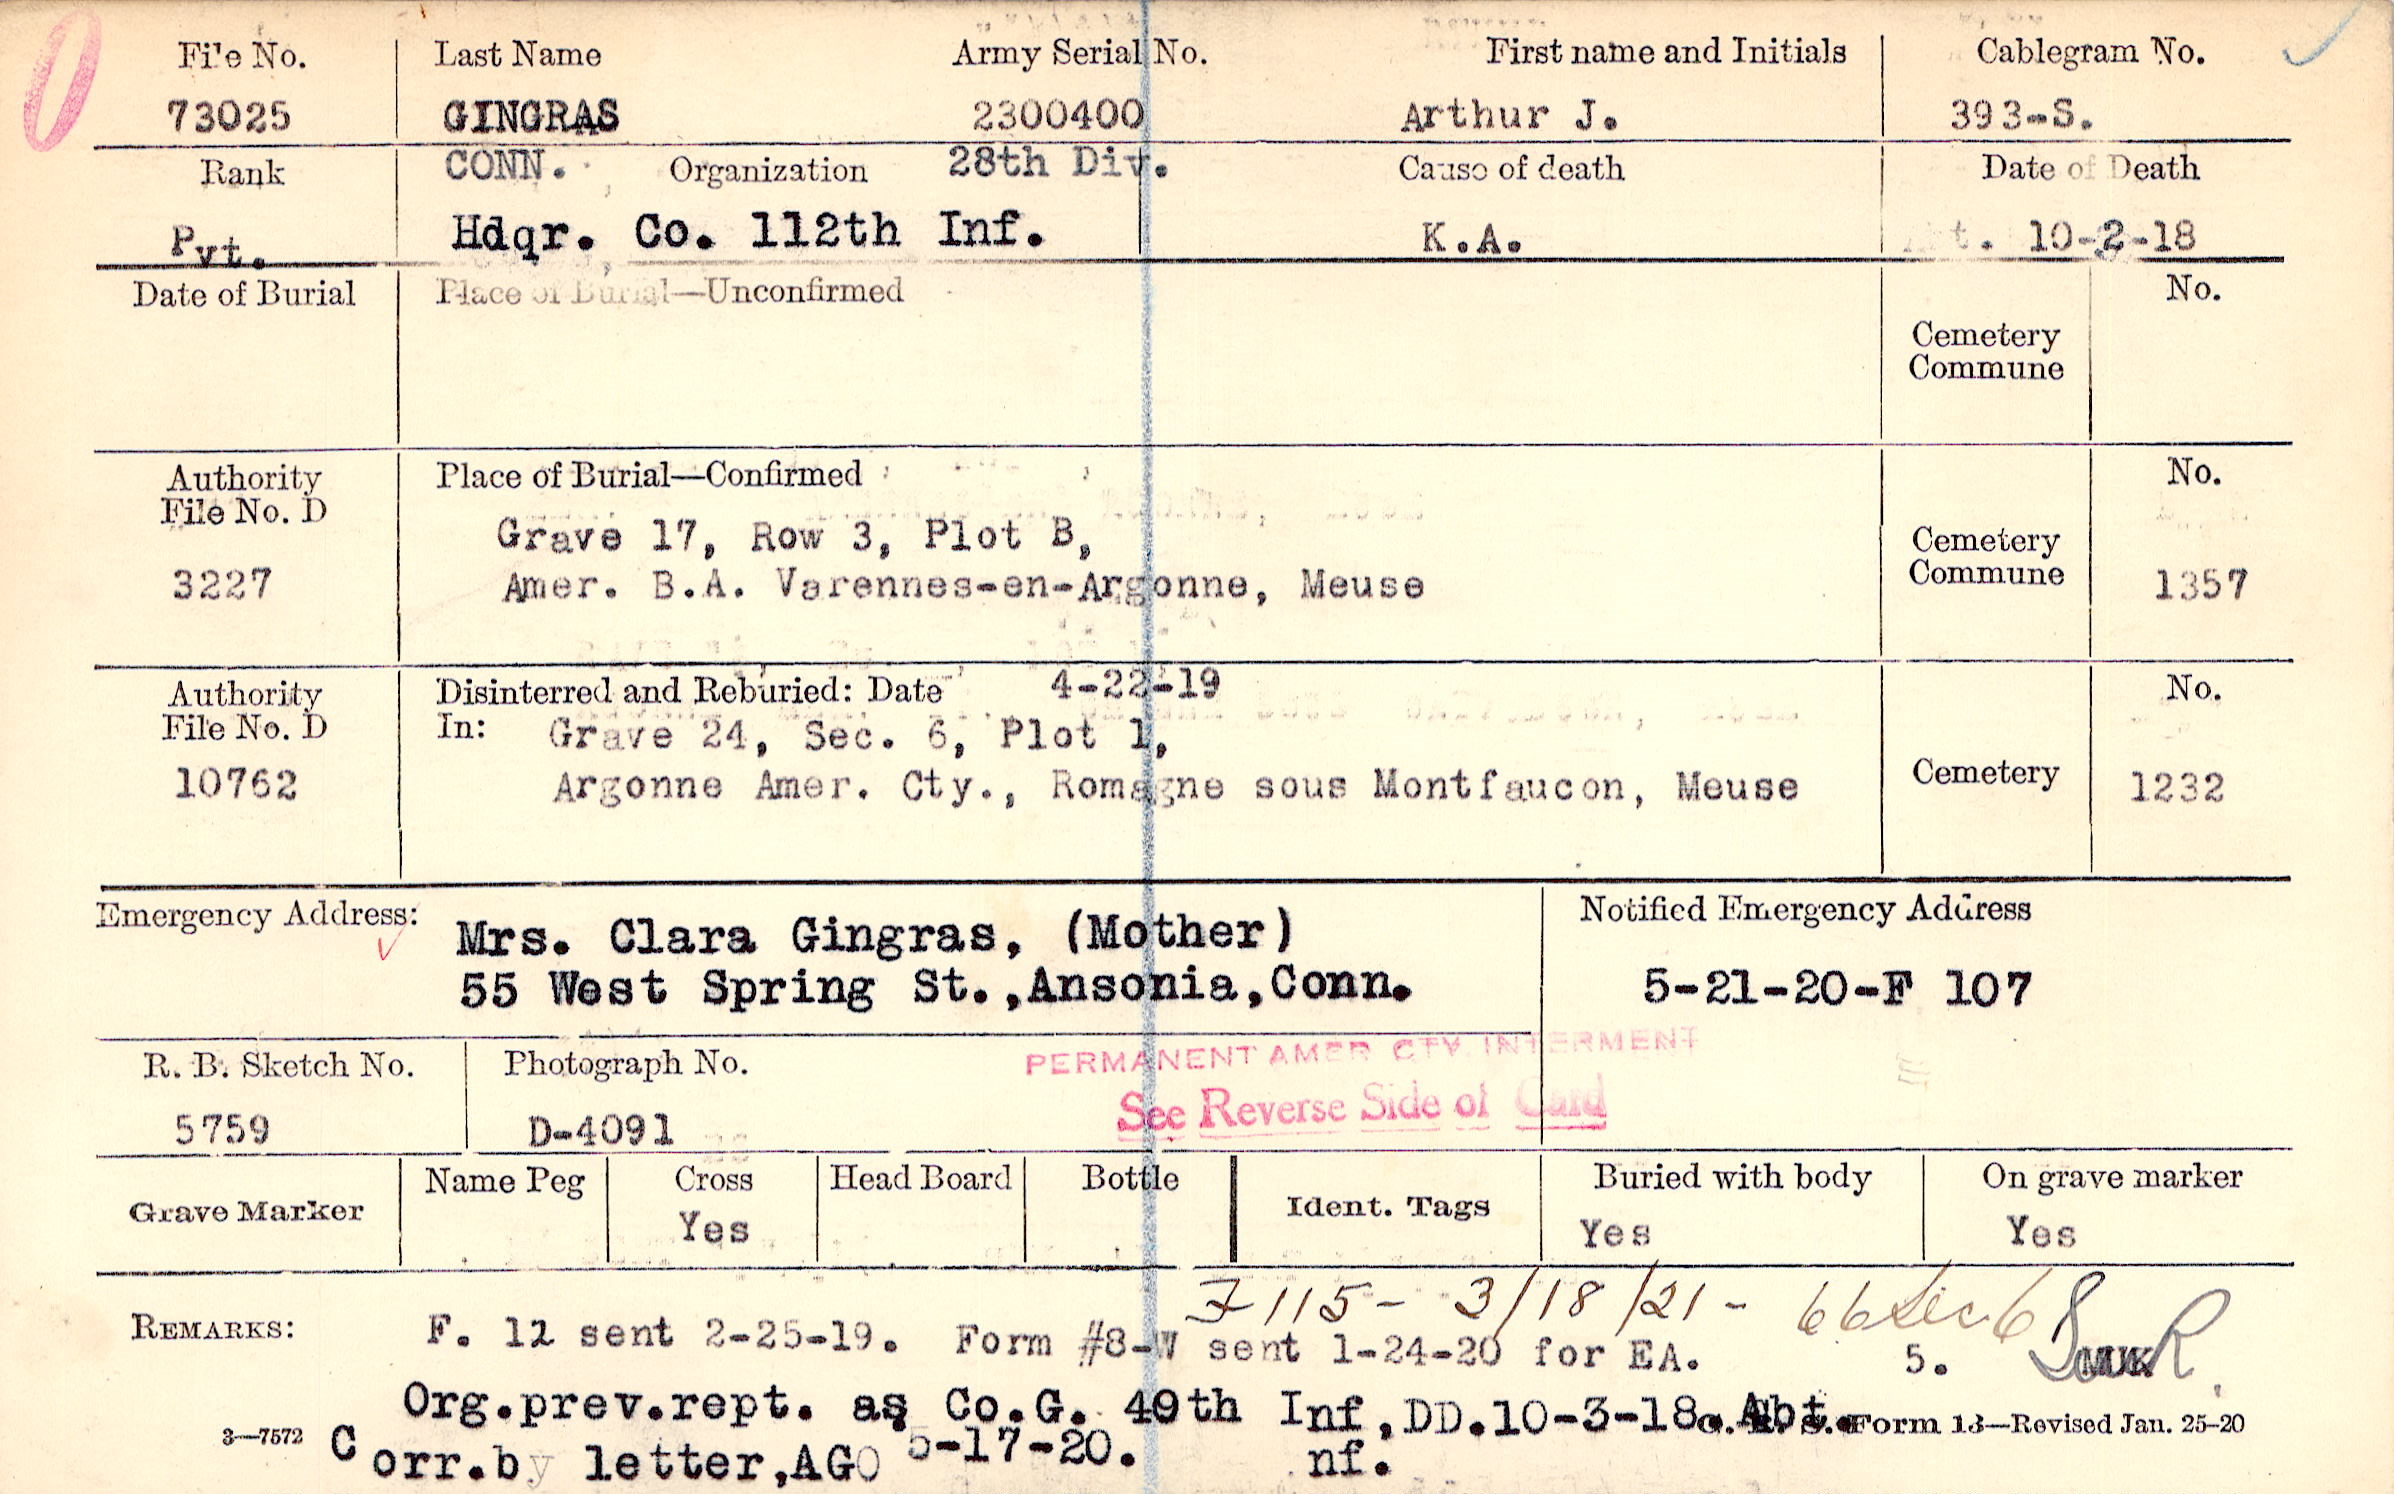 File No. Last Name Army Serial No. First name and Initials Cablegram No.
73025 GINGRAS 2300400 Arthur J. 393-S.
Rank CONN. Organization 28th Div. Cause of death Date of Death
Pvt. Hdqr. Co. 112th Inf. K.A. 10-2-18
Date of Burial Place of Burial—Unconfirmed No.
Cemetery
Commune
Authority Place of Burial—Confirmed No.
File No. D
Grave 17, Row 3, Plot B, Cemetery
3227 Amer. B.A. Varennes-en-Argonne, Meuse Commune 1357
Authority Disinterred and Reburied: Date 4-22-19 No.
File No. D In: Grave 24, Sec. 6, Plot 1,
10762 Argonne Amer. Cty., Romagne sous Montfaucon, Meuse Cemetery 1232
Emergency Address: Notified Emergency Address
Mrs. Clara Gingras, (Mother)
55 West Spring St.,Ansonia,Conn. 5-21-20-F 107
PERMANENT AMER CTY. INTERMENT
R. B. Sketch No. Photograph No.
See Reverse Side of Card
5759 D-4091
Grave Marker Name Peg Cross Head Board Bottle Ident. Tags Buried with body On grave marker
Yes Yes Yes
F 115 - 3/18/21 -
REMARKS: F. 12 sent 2-25-19. Form #8-W sent 1-24-20 for EA. 5.
Org.prev.rept. as Co.G. 49th Inf,DD.10-3-18. Abt.
3—7572 Form 13—Revised Jan. 25-20
Corr.by letter,AGO 5-17-20. nf.